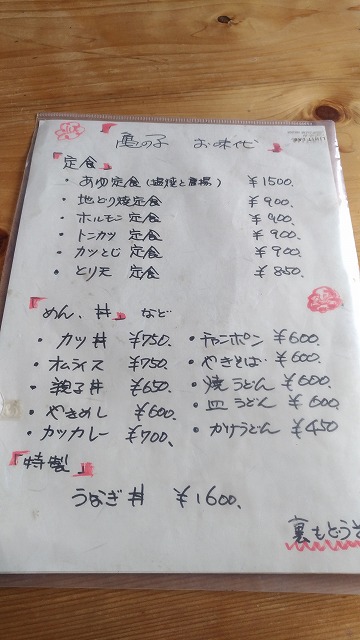 『亀の子 お味代』
『定食』
・あゆ定食(塩焼と甘露) ¥1500.
・地どり焼定食 ¥900.
・ホルモン定食 ¥900.
・トンカツ定食 ¥900.
・カツとじ定食 ¥900.
・とり天定食 ¥850.
『めん、丼』など
・カツ丼 ¥750. ・チャンポン ¥600.
・オムライス ¥750. ・やきそば ¥600.
・親子丼 ¥650. ・焼うどん ¥600.
・やきめし ¥600. ・皿うどん ¥600.
・カツカレー ¥700. ・かけうどん ¥450
『特製』
うなぎ丼 ¥1600.
裏もどうぞ